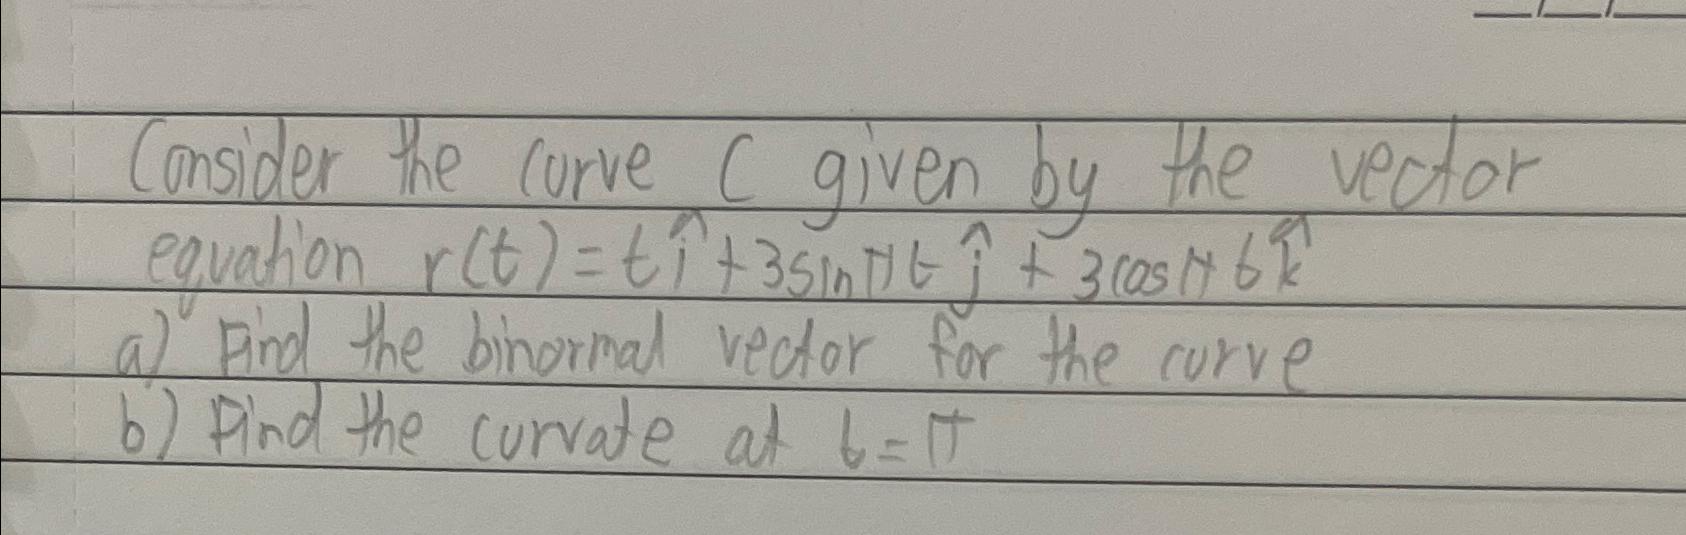 Consider the curve C given by the vector
equation r(t) = t î + 3 sin π t ĵ + 3 cos π t k̂
a) Find the binormal vector for the curve
b) Find the curvate at t = π